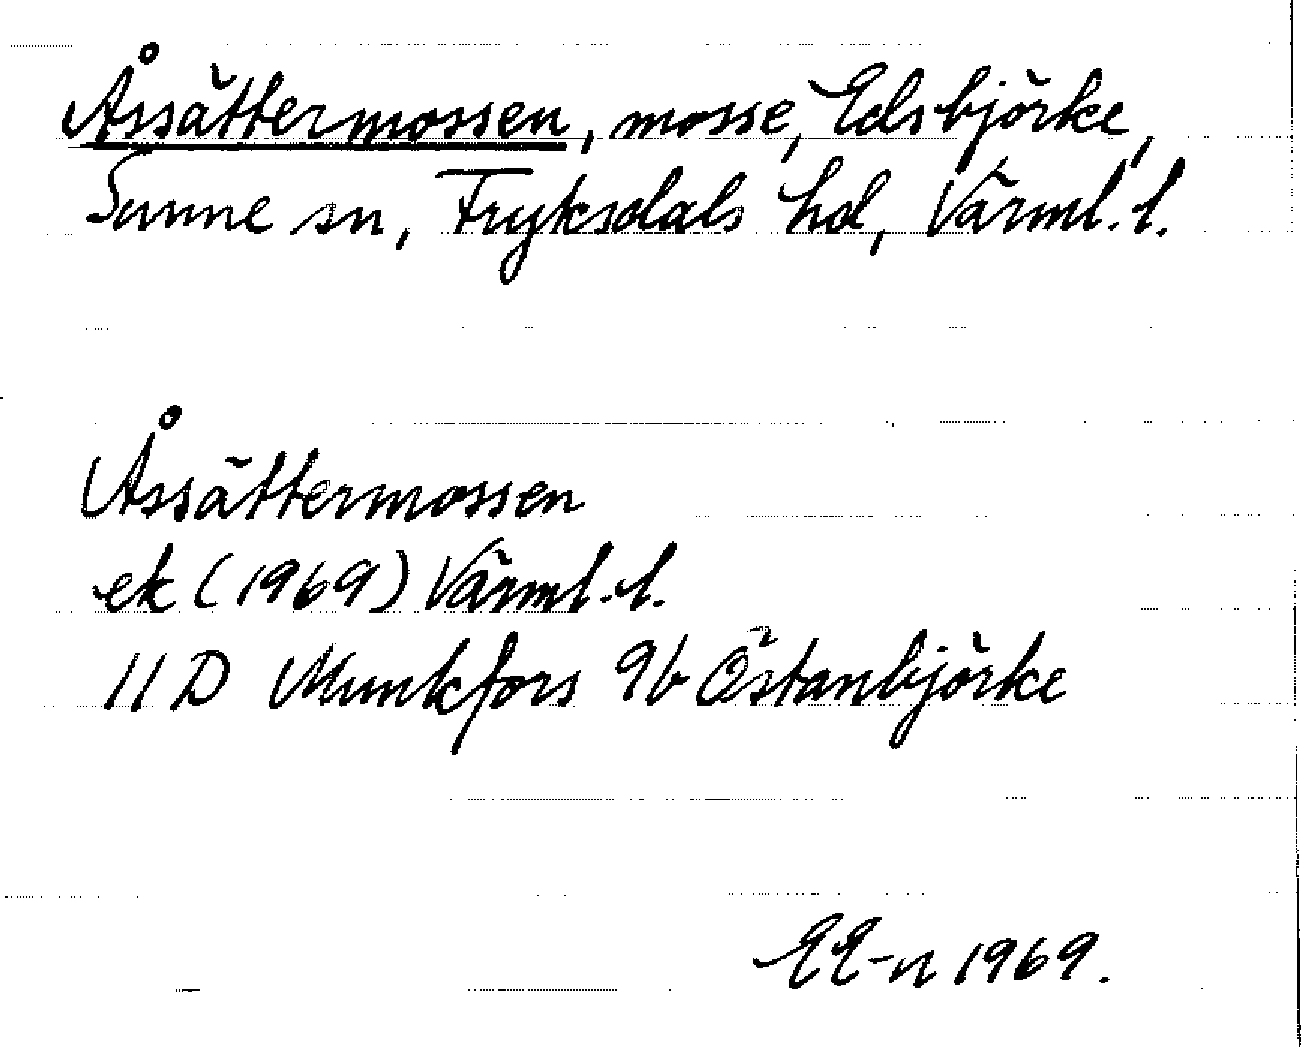 Åssättermossen, mosse, Edsbjörke,
Sunne sn, Fryksdals hd, Värml. l.
Åssättermossen
ek (1969) Värml. l.
11 D Munkfors 9b Östanbjörke
EE-n 1969.